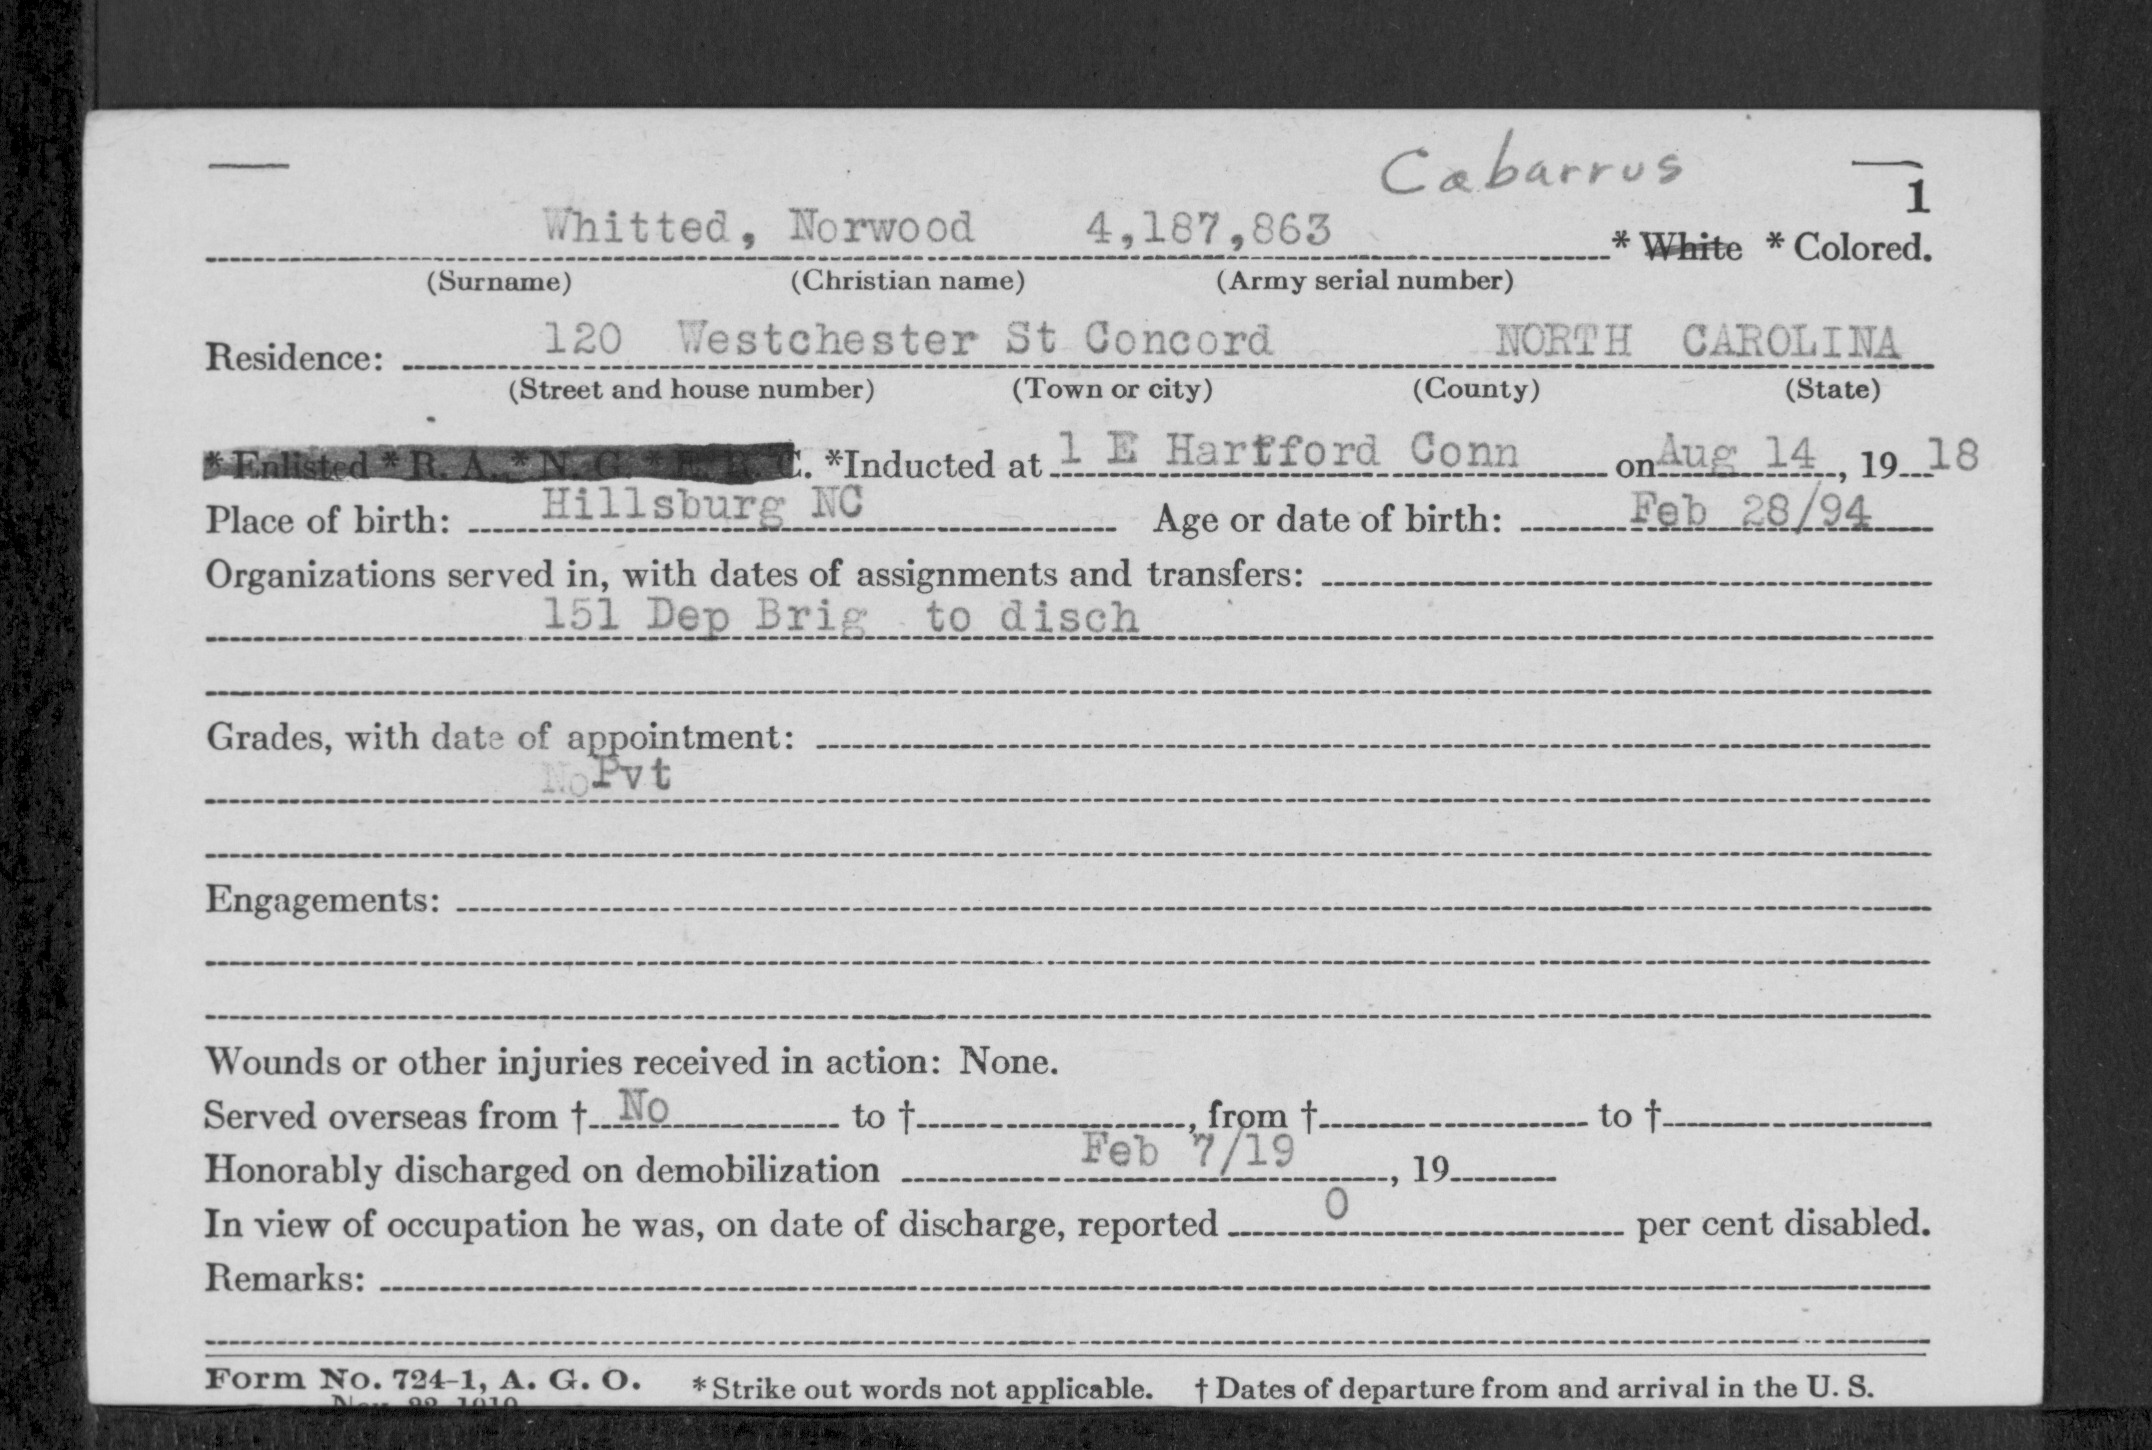 Cabarrus
1
Whitted, Norwood 4,187,863 * White * Colored.
(Surname) (Christian name) (Army serial number)
120 Westchester St Concord NORTH CAROLINA
Residence:
(Street and house number) (Town or city) (County) (State)
* Enlisted * R. A. * N. G. * E. R. C. *Inducted at 1 E Hartford Conn on Aug 14, 19 18
Place of birth: Hillsburg NC Age or date of birth: Feb 28/94
Organizations served in, with dates of assignments and transfers:
151 Dep Brig to disch
Grades, with date of appointment:
No Pvt
Engagements:
Wounds or other injuries received in action: None.
Served overseas from † No to †, from † to †
Honorably discharged on demobilization Feb 7/19, 19
In view of occupation he was, on date of discharge, reported 0 per cent disabled.
Remarks:
Form No. 724-1, A. G. O. * Strike out words not applicable. † Dates of departure from and arrival in the U. S.